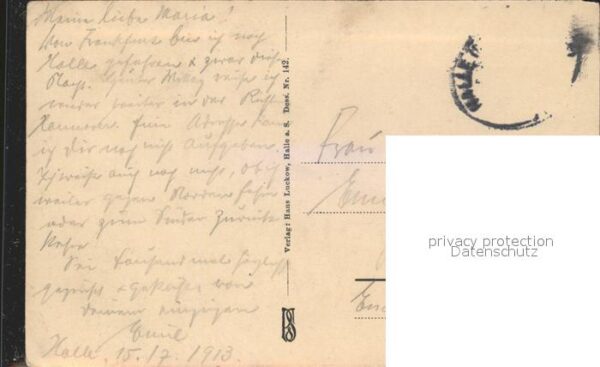 Meine liebe Maria!
Von Frankfurt bin ich nach
Halle gefahren & zwar diese
Nacht. Mittag reise ich
wieder weiter in der Richt.
Hannover. Eine Adresse kann
ich Dir noch nicht aufgeben.
Ich weiss auch noch nicht, ob ich
weiter gegen Norden fahre
oder zum Süden zurück
kehre.
Sei tausendmal
gegrüsst & geküsst von
Deinem einzigen
Emil
Halle, 15./7. 1913.
Verlag: Hans Luckow, Halle a. S. Dess. Nr. 142.
HALLE
Frau
privacy protection
Datenschutz